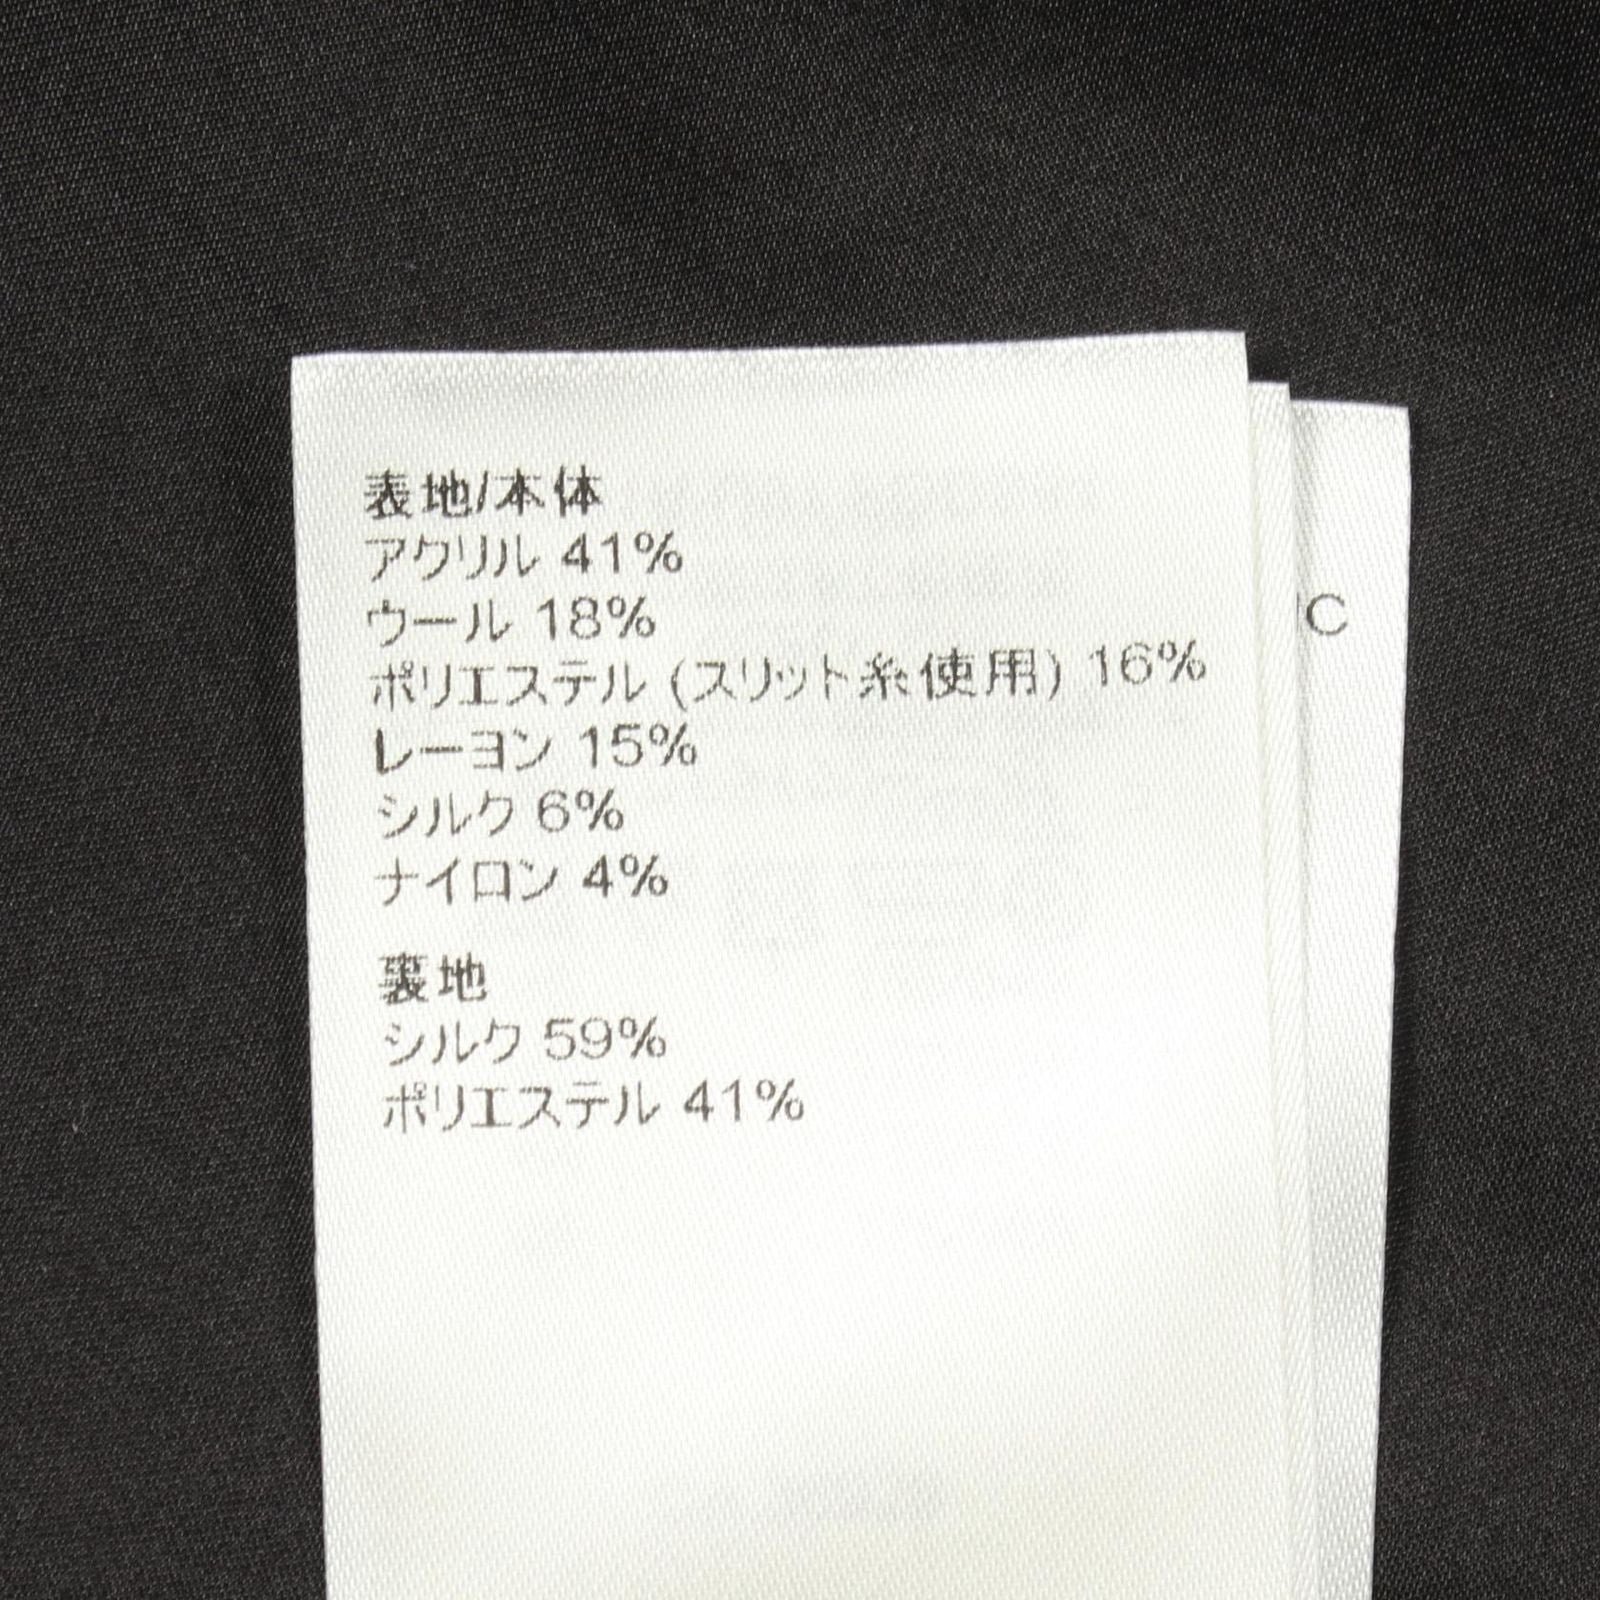 表地/本体
アクリル 41%
ウール 18%
ポリエステル (スリット糸使用) 16%
レーヨン 15%
シルク 6%
ナイロン 4%
裏地
シルク 59%
ポリエステル 41%
C